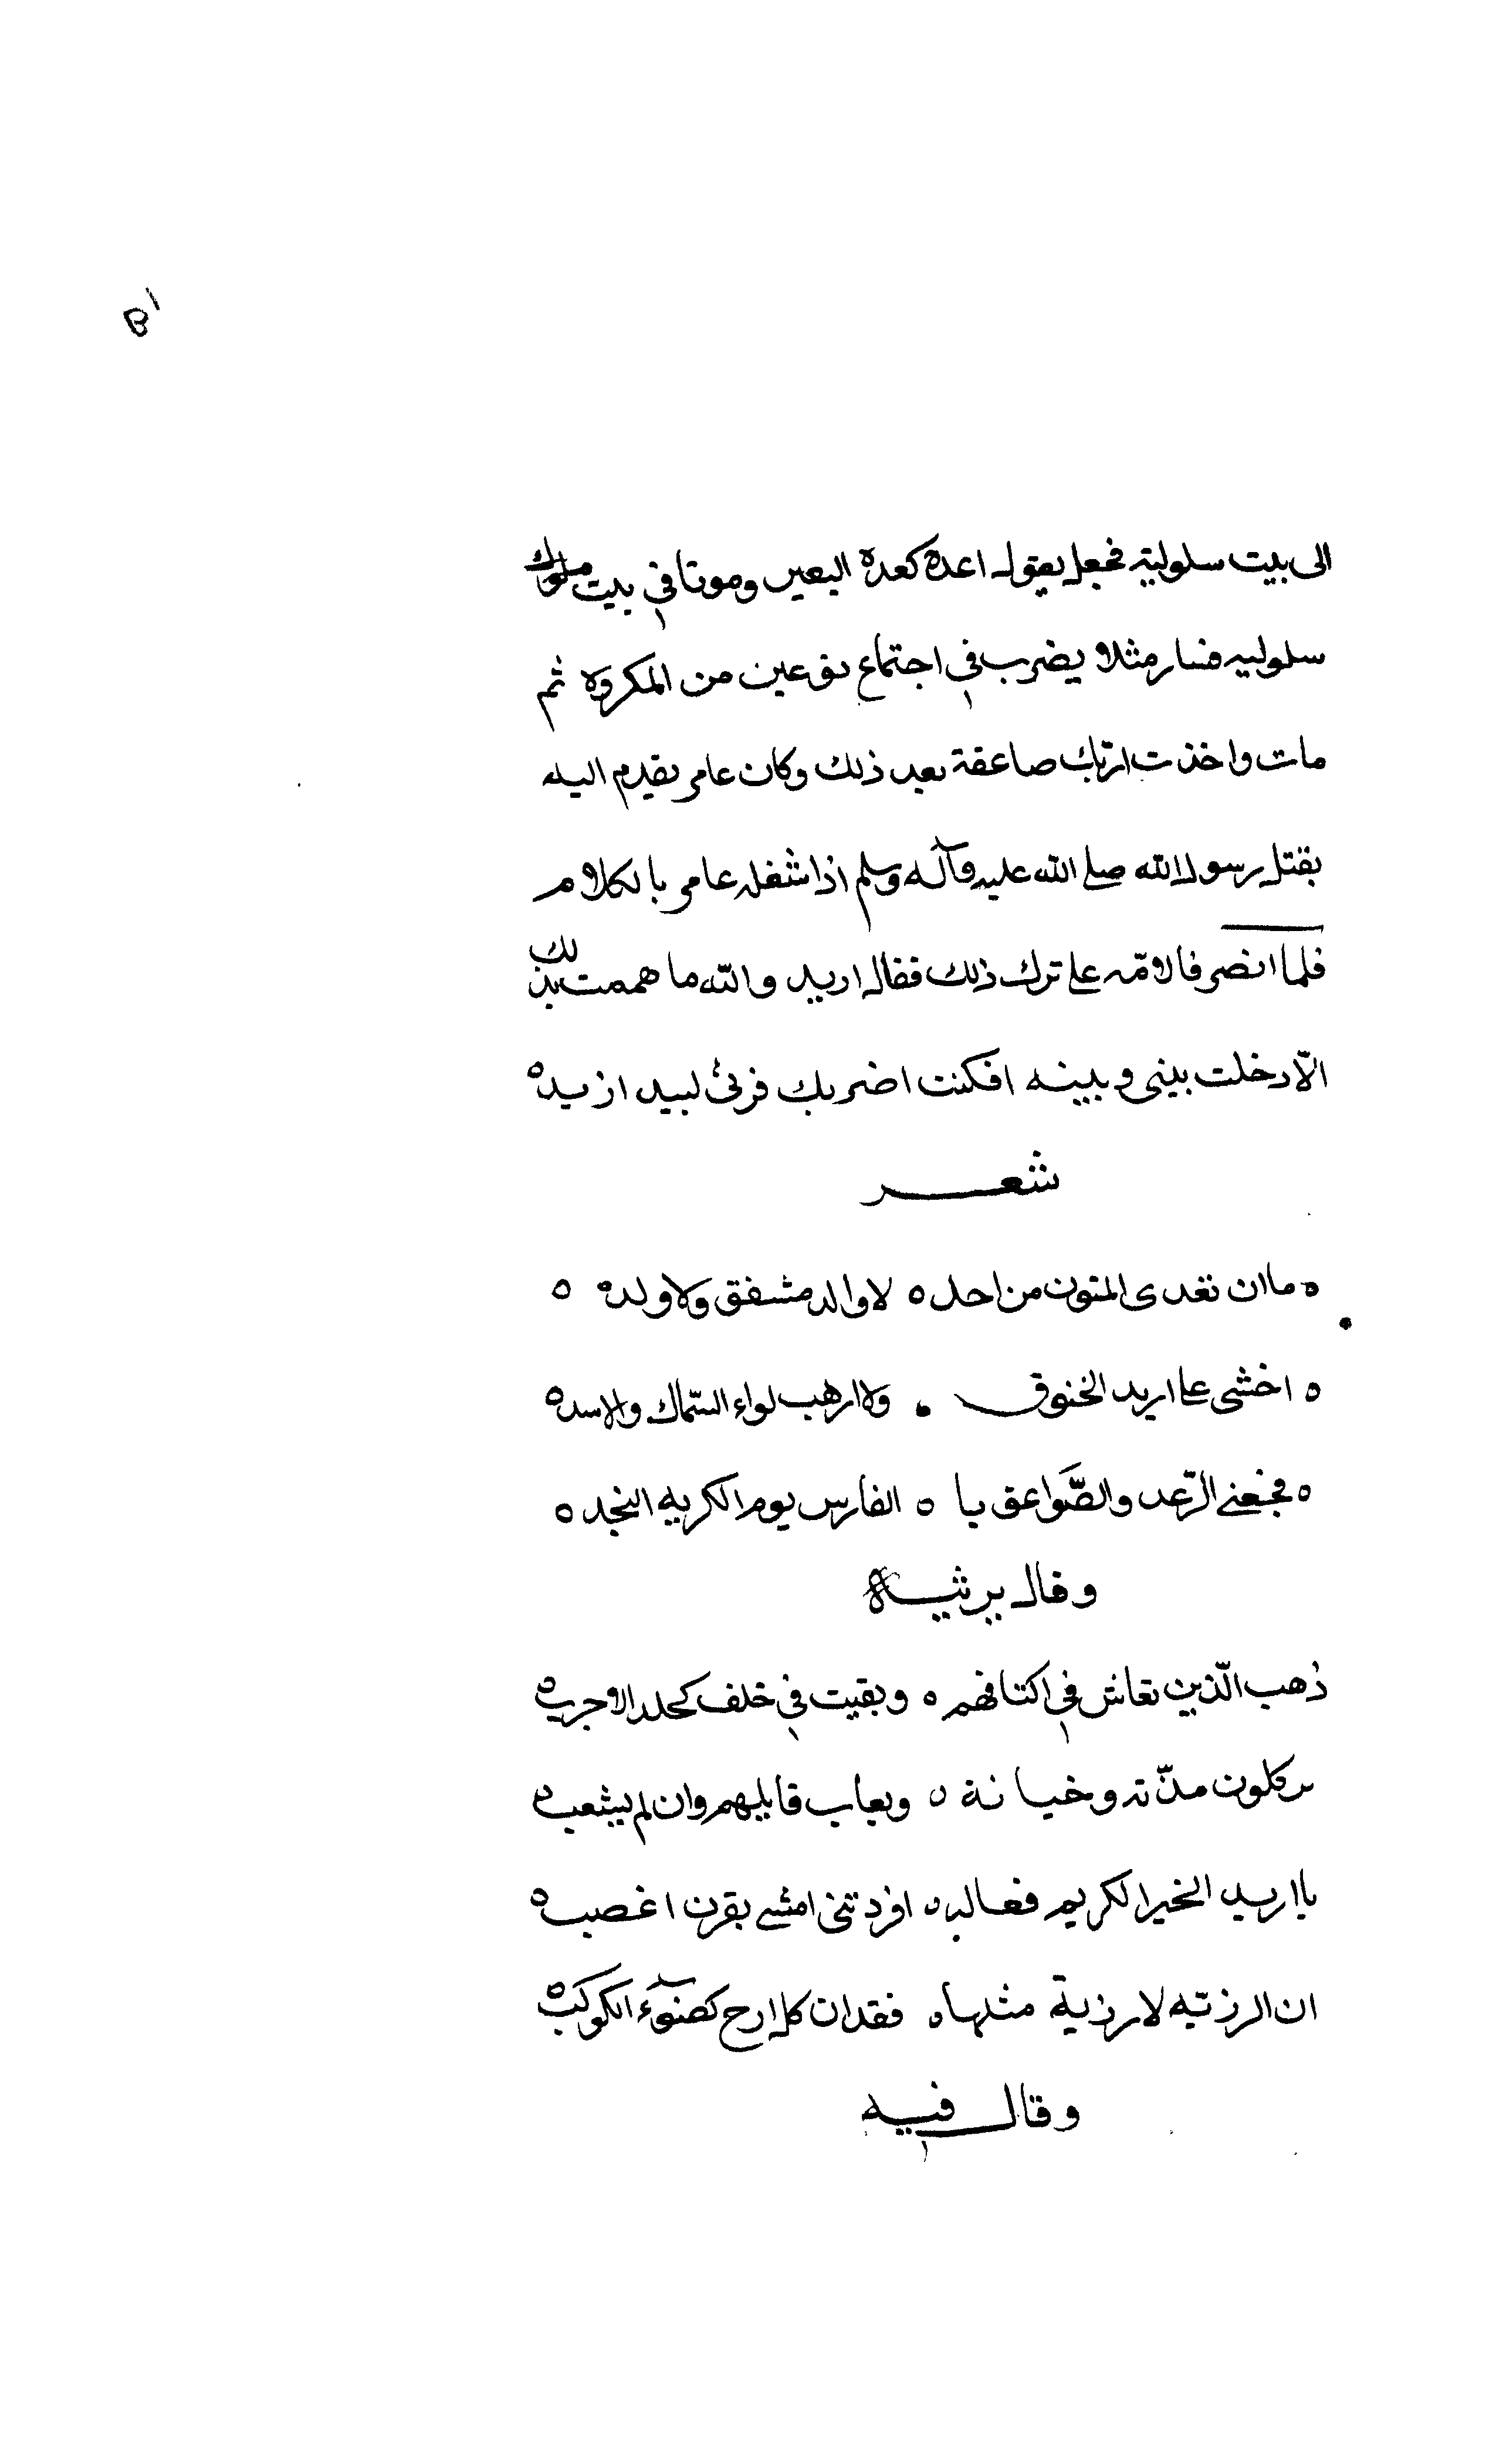 الى بيت سلولية فجعل يقول اعدة كعدة البعير وموتا في بيت
سلوليه فسار مثلا يضرب في اجتماع نوعين من المكروه ثم
مات واخذت اربك صاعقة بعد ذلك وكان عامر يقدم اليه
بقتل رسول الله صلى الله عليه وآله وسلم اذا شغله عامر بالكلام
فلما انصرفا لامّه على ترك ذلك فقال اربد والله ما هممت بذلك
الّا دخلت بيني وبينه افكنت اضربك فرثى لبيد اربد ه
شعر
ه ما ان تعدى المنون من احد ه لا والد مشفق ولا ولد ه ه
ه اخشى على اربد الحتوف ولا ارهب لواء السّماك والاسد ه
ه فجعني الرّعد والصّواعق با ه الفارس يوم الكريه النجد ه
وقال يرثيه
ذهب الّذين تعاش في اكنافهم ه وبقيت في خلف كجلد الاجرب ه
وخيانة ه ويعاب قايلهم وان لم يشعب ه
يا اربد الخير الكريم فعاله ه افردتني امشي بقرن اعصب ه
ان الرزيّه لا رزية مثلها ه فقدان كل اخ كضوء الكوكب ه
وقال فيه